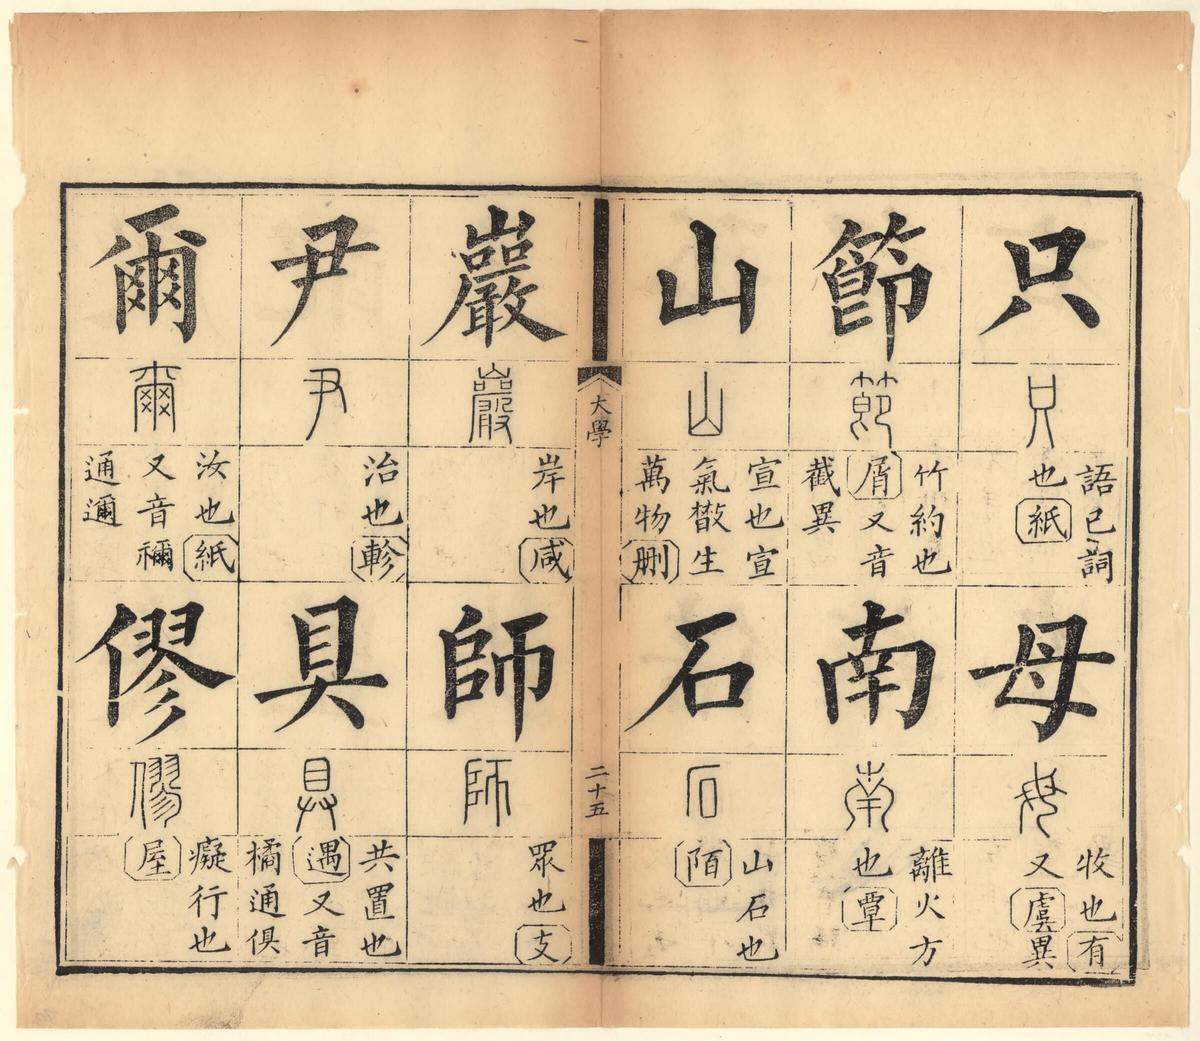 只
只
語已詞
也紙
母
母
牧也有
又虞異
節
節
竹約也
屑又音
截異
南
南
離火方
也覃
山
山
宣也宣
氣㪚生
萬物刪
石
石
山石也
陌
大學
二十五
巖
巖
岸也咸
師
師
眾也支
尹
尹
治也軫
具
具
共置也
遇又音
橘通俱
爾
爾
汝也紙
又音禰
通邇
僇
僇
癡行也
屋